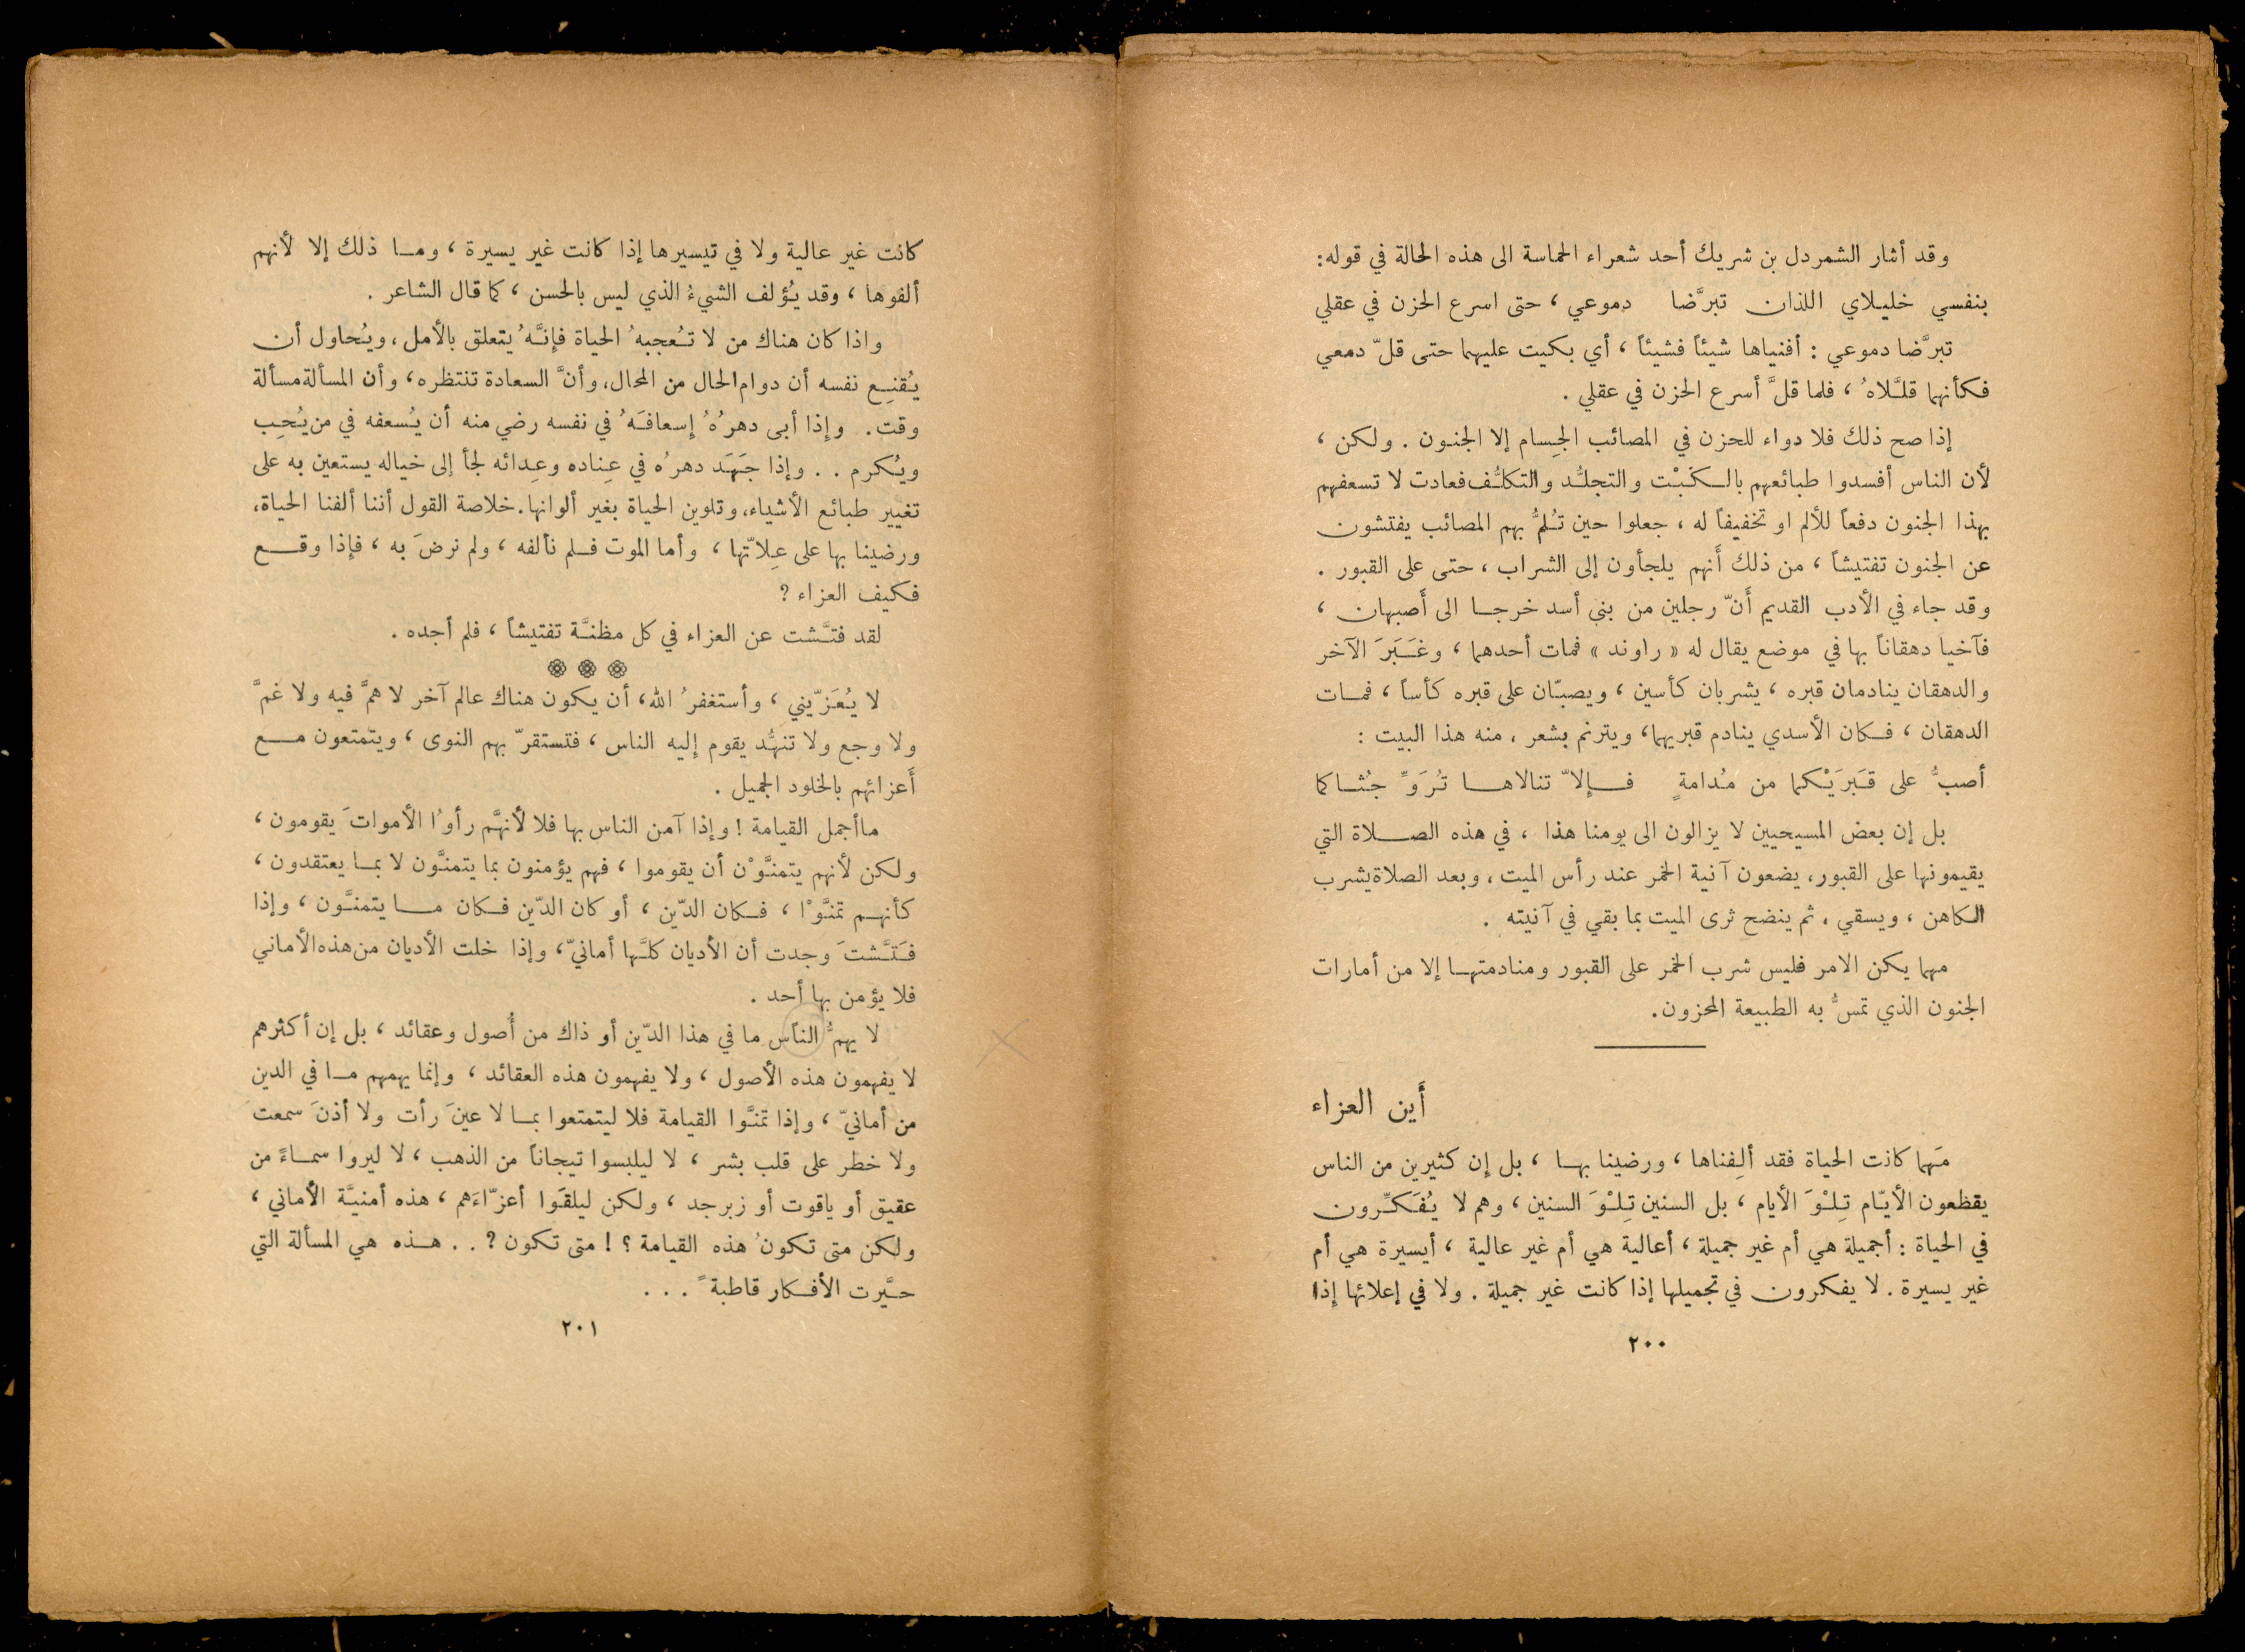 وقد أثار الشمردل بن شريك أحد شعراء الحماسة الى هذه الحالة في قوله:
بنفسي خليلاي اللذان تبرَّضا دموعي ، حتى اسرع الحزن في عقلي
تبرَّضا دموعي : أفنياها شيئاً فشيئاً ، أي بكيت عليهما حتى قلّ دمعي
فكأنهما قلَّلاهُ ، فلما قلَّ أسرع الحزن في عقلي .
إذا صح ذلك فلا دواء للحزن في المصائب الجِسام إلا الجنون . ولكن ،
لأن الناس أفسدوا طبائعهم بالكَبْت والتجلُّد والتكلُّف فعادت لا تسعفهم
بهذا الجنون دفعاً للألم او تخفيفاً له ، جعلوا حين تُلمُّ بهم المصائب يفتشون
عن الجنون تفتيشاً ، من ذلك أَنهم يلجأون إلى الشراب ، حتى على القبور .
وقد جاء في الأدب القديم أَنّ رجلين من بني أسد خرجا الى أَصبهان ،
فآخيا دهقاناً بها في موضع يقال له « راوند » فمات أحدهما ، وغَبَرَ الآخر
والدهقان ينادمان قبره ، يشربان كأسين ، ويصبّان على قبره كأساً ، فمات
الدهقان ، فكان الأسدي ينادم قبريهما، ويترنم بشعر ، منه هذا البيت :
أصبُّ على قَبرَيْكما من مُدامةٍ فإلاّ تنالاها تُرَوِّ جُثاكما
بل إن بعض المسيحيين لا يزالون الى يومنا هذا ، في هذه الصلاة التي
يقيمونها على القبور، يضعون آنية الخمر عند رأس الميت ، وبعد الصلاة يشرب
الكاهن ، ويسقي ، ثم ينضح ثرى الميت بما بقي في آنيته .
مهما يكن الامر فليس شرب الخمر على القبور ومنادمتها إلا من أمارات
الجنون الذي تمسُّ به الطبيعة المحزون.
أَين العزاء
مَهما كانت الحياة فقد ألِفناها ، ورضينا بها ، بل إن كثيرين من الناس
يقطعون الأيّام تِلْوَ الأيام ، بل السنين تِلْوَ السنين ، وهم لا يُفَكِّرون
في الحياة : أجميلة هي أم غير جميلة ، أعالية هي أم غير عالية ، أيسيرة هي أم
غير يسيرة . لا يفكرون في تجميلها إذا كانت غير جميلة . ولا في إعلائها إذا
٢٠٠
كانت غير عالية ولا في تيسيرها إذا كانت غير يسيرة ، وما ذلك إلا لأنهم
ألفوها ، وقد يُؤلف الشيءُ الذي ليس بالحسن ، كما قال الشاعر .
واذا كان هناك من لا تُعجبهُ الحياة فإنَّهُ يتعلق بالأمل ، ويُحاول أن
يُقنِع نفسه أن دوام الحال من المحال، وأنَّ السعادة تنتظره، وأن المسألة مسألة
وقت . وإذا أبى دهرُهُ إسعافَهُ في نفسه رضي منه أن يُسعفه في من يُحِب
ويُكرم . . وإذا جَهَد دهرُه في عِناده وعِدائه لجأ إلى خياله يستعين به على
تغيير طبائع الأشياء، وتلوين الحياة بغير ألوانها. خلاصة القول أننا ألفنا الحياة،
ورضينا بها على عِلاّتها ، وأما الموت فلم نألفه ، ولم نرضَ به ، فإذا وقع
فكيف العزاء ?
لقد فتَّشت عن العزاء في كل مظنَّة تفتيشاً ، فلم أجده .
لا يُعَزّيني ، وأستغفرُ الله، أن يكون هناك عالم آخر لا همَّ فيه ولا غمَّ
ولا وجع ولا تنهُّد يقوم إليه الناس ، فتستقرّ بهم النوى ، ويتمتعون مع
أَعزائهم بالخلود الجميل .
ماأجمل القيامة ! وإذا آمن الناس بها فلا لأنهَّم رأوُا الأمواتَ يقومون ،
ولكن لأنهم يتمنَّوْن أن يقوموا ، فهم يؤمنون بما يتمنَّون لا بما يعتقدون ،
كأنهم تمنَّوْا ، فكان الدّين ، أو كان الدّين فكان ما يتمنَّون ، وإذا
فَتَّشتَ وجدت أن الأديان كلَّها أمانيّ، وإذا خلت الأديان من هذه الأماني
فلا يؤمن بها أحد .
لا يهمُّ الناس ما في هذا الدّين أو ذاك من أُصول وعقائد ، بل إن أكثرهم
لا يفهمون هذه الأصول ، ولا يفهمون هذه العقائد ، وإنما يهمهم ما في الدين
من أمانيّ ، وإذا تمنَّوا القيامة فلا ليتمتعوا بما لا عينَ رأت ولا أذنَ سمعتَ
ولا خطر على قلب بشر ، لا ليلبسوا تيجاناً من الذهب ، لا ليروا سماءً من
عقيق أو ياقوت أو زبرجد ، ولكن ليلقَوا أعزّاءَهم ، هذه أمنيَّة الأماني ،
ولكن متى تكونُ هذه القيامة ؟ ! متى تكون ? . . هذه هي المسألة التي
حيَّرت الأفكار قاطبةً . . .
٢٠١